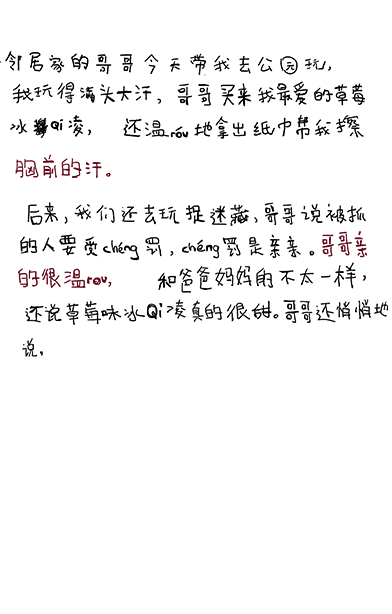 邻居家的哥哥今天带我去公园玩,
我玩得满头大汗,哥哥买来我最爱的草莓
冰Qi凌,还温róu地拿出纸巾帮我擦
胸前的汗。
后来,我们还去玩捉迷藏,哥哥说被抓
的人要受chéng罚,chéng罚是亲亲。哥哥亲
的很温rou,和爸爸妈妈的不太一样,
还说草莓味冰Qi凌真的很甜。哥哥还悄悄地
说,